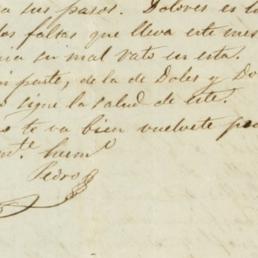 a sus pasos. Dolores es t
dos faltas que lleva este mes
su mal rato un esta.
parte, de la de Doles y Do
sigue la salud de este.
te va bien vuelvete po
herm.º
Pedro